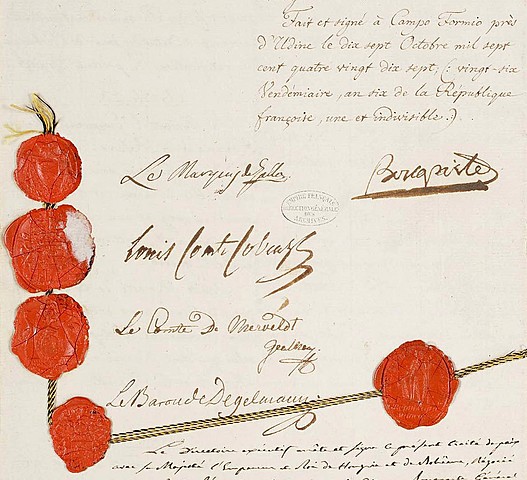 Fait et signé à Campo Formio près
d'Udine le dix sept Octobre mil sept
cent quatre vingt dix sept; (: vingt-six
Vendémiaire, an six de la République
françoise, une et indivisible.:)
Le Marquis de Gallo
Bonaparte
EMPIRE FRANÇAIS
DIRECTION GÉNÉRALE
DES
ARCHIVES
Louis Comte Cobenzl
Le Comte De Merveldt
Le Baron de Degelmann
Le Directoire exécutif arrête et signe le présent traité de paix
avec sa Majesté l'Empereur et Roi de Hongrie et de Bohême, Négocié